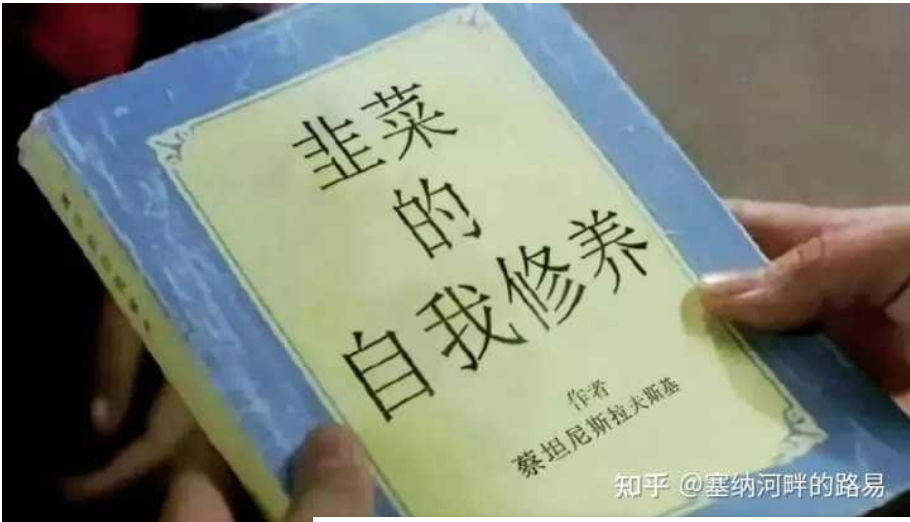 韭菜
的
自我修养
作者
蔡坦尼斯拉夫斯基
知乎 @塞纳河畔的路易